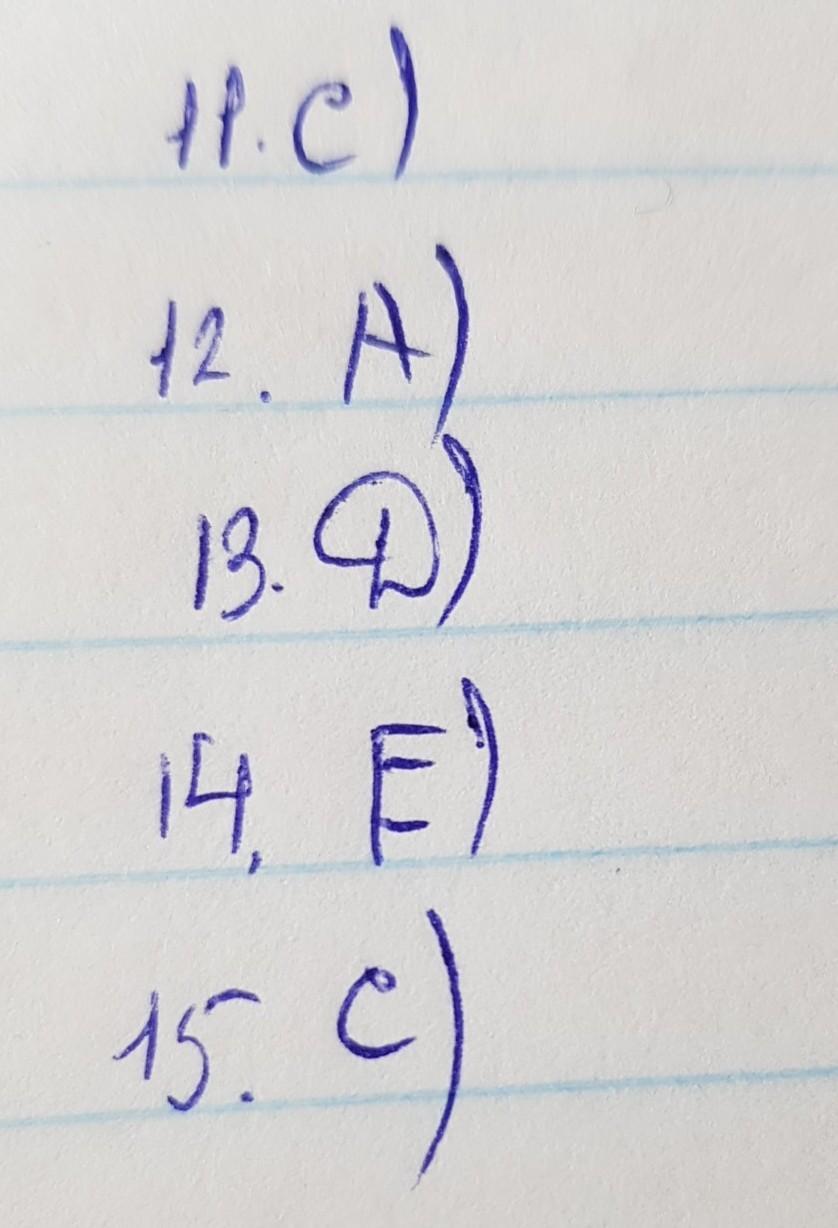 11. C)
12. A)
13. D)
14. E)
15. C)